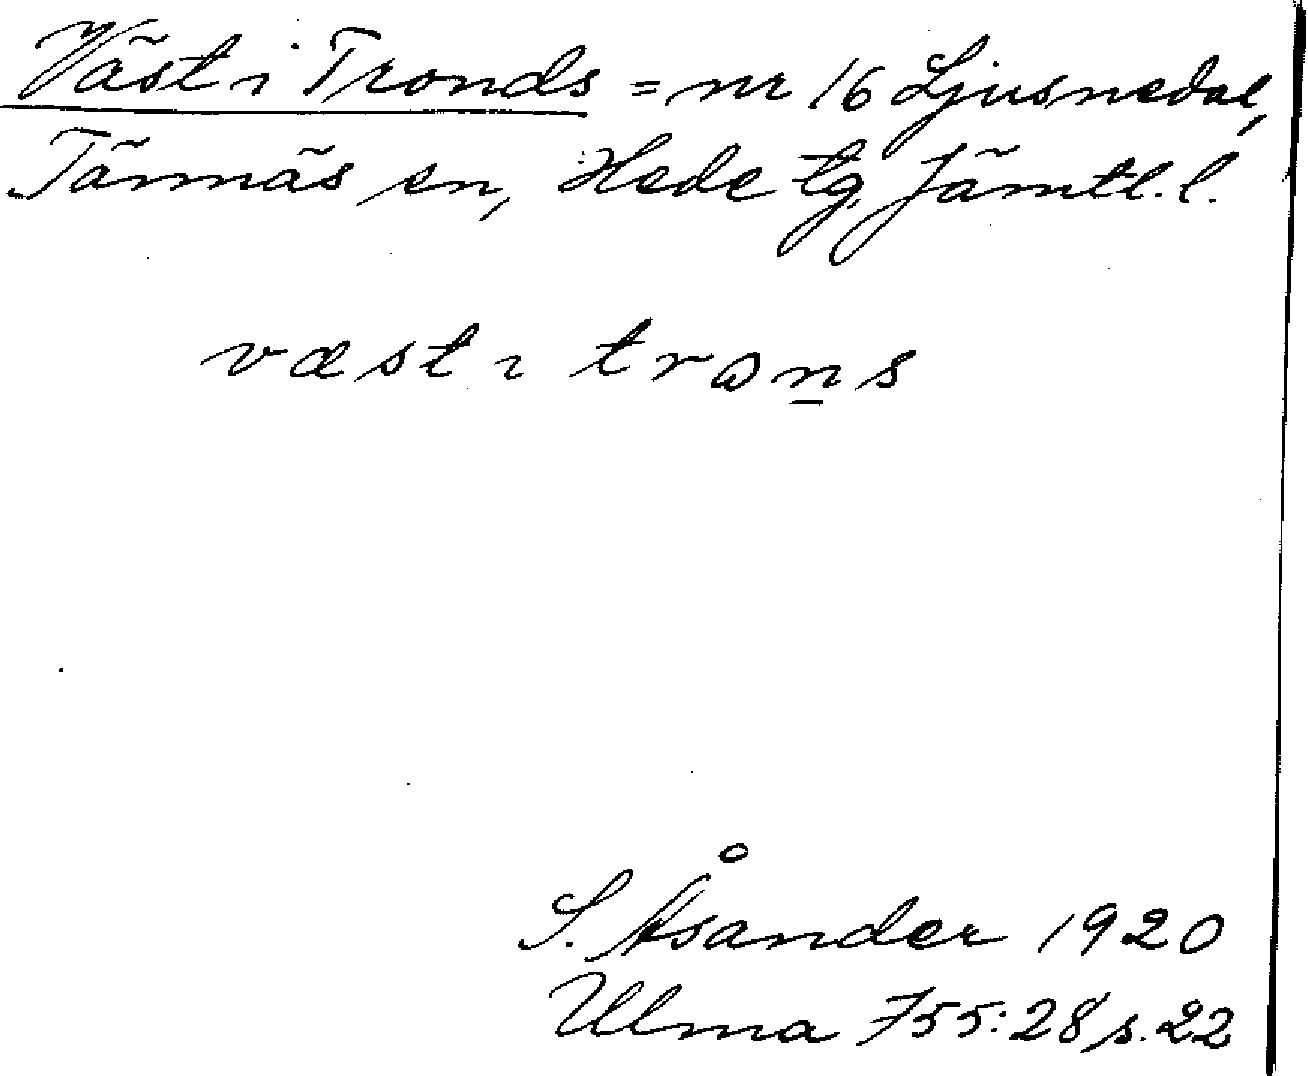 Väst i Tronds = nr 16 Ljusnedal,
Tännäs sn, Hede tg, Jämtl. l.
væst ı trɷn̲s
S. Åsander 1920
Ulma 755:28 s. 22